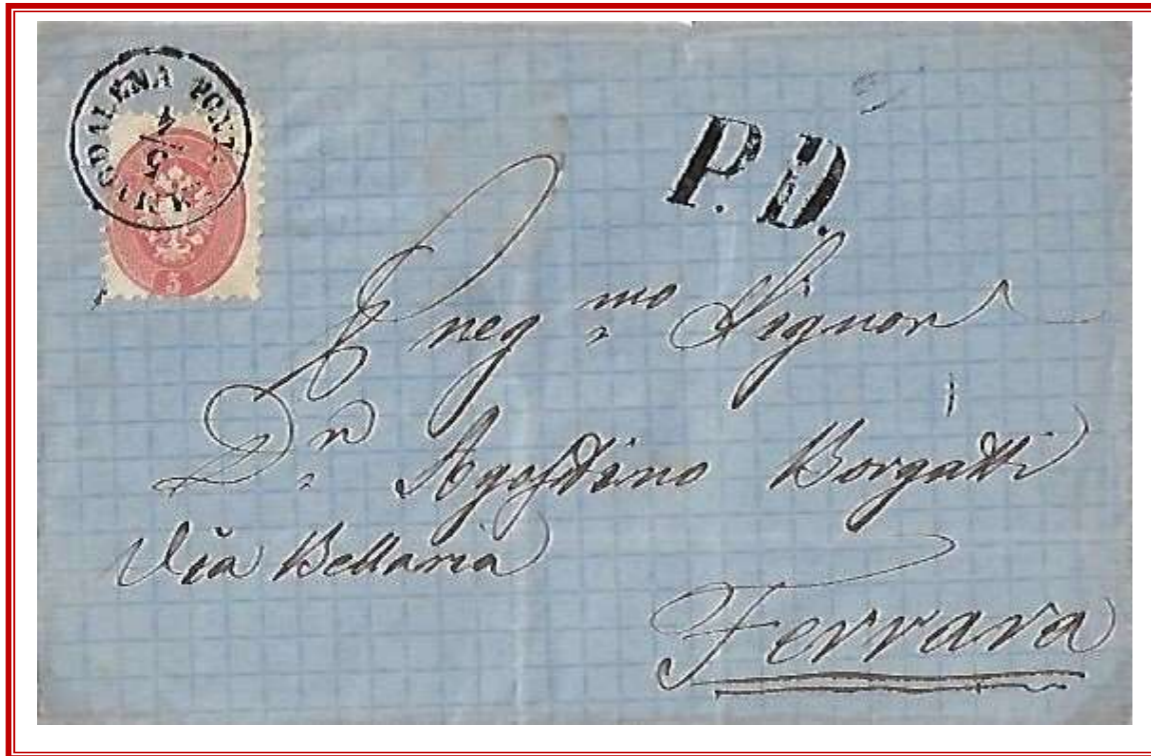 MADDALENA PONT.
5/4
5
P.D.
Preg.mo Signor
D.r Agostino Borgatti
Via Bellaria
Ferrara